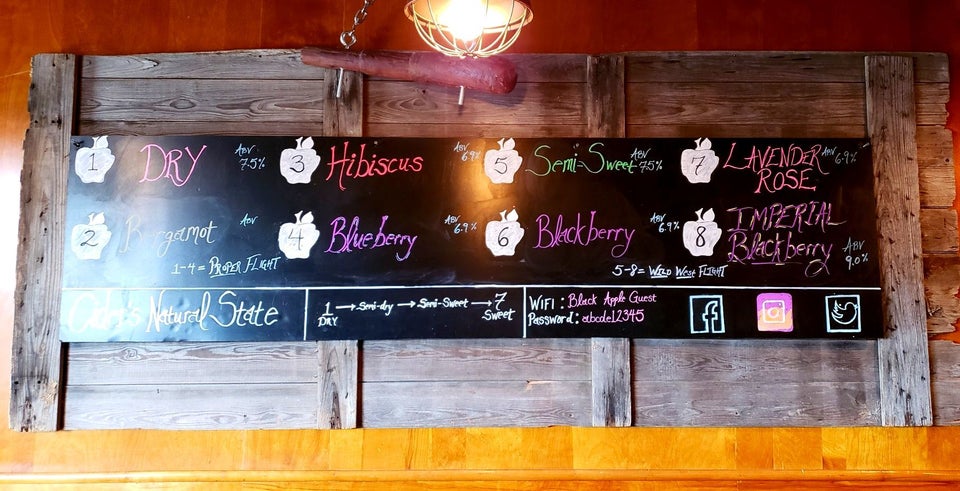 1 DRY ABV 7.5%
2 Bergamot ABV
3 Hibiscus ABV 6.9%
4 Blueberry ABV 6.9%
1-4 = PROPER FLIGHT
5 Semi-Sweet ABV 7.5%
6 Blackberry ABV 6.9%
7 LAVENDER ABV 6.9%
ROSE
8 IMPERIAL
Blackberry ABV 9.0%
5-8 = Wild West FLIGHT
Cider's Natural State
1 → Semi-dry → Semi-Sweet → 7
DRY Sweet
WiFi : Black Apple Guest
Password : abcde12345
f